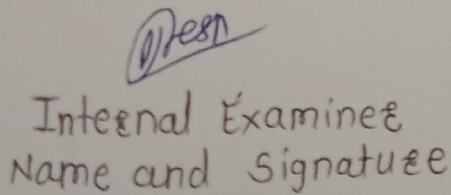 Internal Examiner
Name and Signature